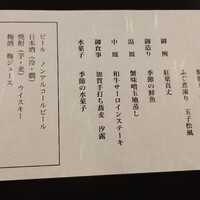 ふぐ煮凍り 玉子松風
御椀
紅葉真丈
御造り
季節の鮮魚
温皿
蟹味噌玉地蒸し
中皿
和牛サーロインステーキ
御食事
加賀手打ち蕎麦 汐露
水菓子
季節の水菓子
ビール ノンアルコールビール
日本酒（冷・燗）
焼酎（芋・麦） ウイスキー
梅酒 梅ジュース